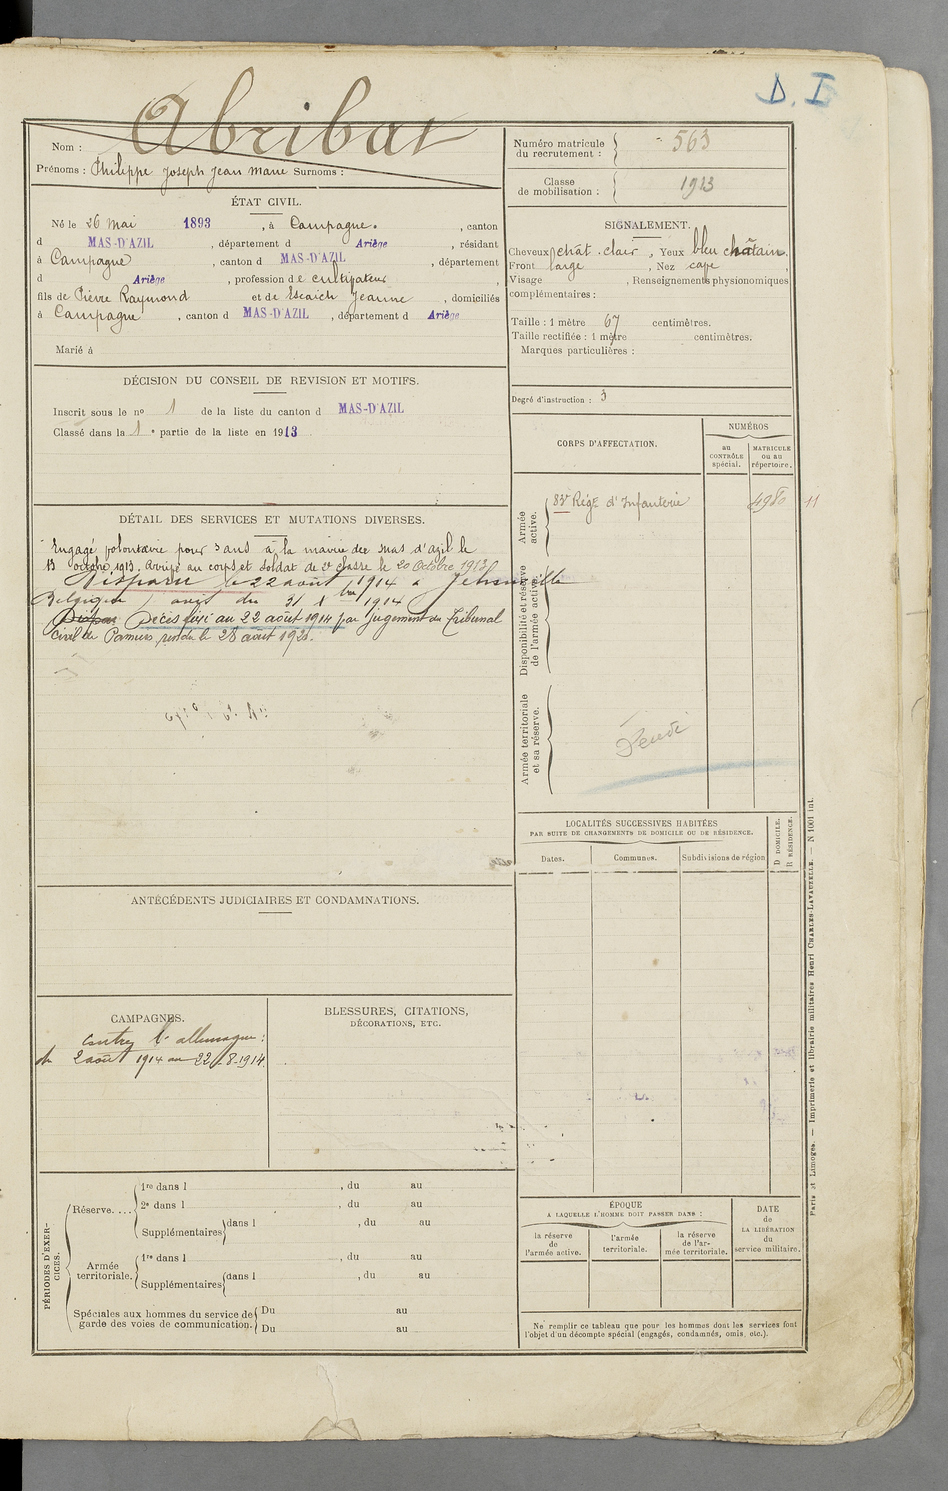 D. I
Abribat
Nom :
Prénoms : Philippe Joseph Jean Marie Surnoms :
Numéro matricule du recrutement : 563
Classe de mobilisation : 1913
ÉTAT CIVIL.
Né le 26 Mai 1893, à Campagne, canton
d MAS-D'AZIL, département d Ariège, résidant
à Campagne, canton d MAS-D'AZIL, département
d Ariège, profession de cultivateur,
fils de Pierre Raymond et de Escaich Jeanne, domiciliés
à Campagne, canton d MAS-D'AZIL, département d Ariège
Marié à
SIGNALEMENT.
Cheveux chât. clair, Yeux bleu châtain.
Front large, Nez cave,
Visage , Renseignements physionomiques
complémentaires :
Taille : 1 mètre 67 centimètres.
Taille rectifiée : 1 mètre centimètres.
Marques particulières :
Degré d'instruction : 3
DÉCISION DU CONSEIL DE REVISION ET MOTIFS.
Inscrit sous le no 1 de la liste du canton d MAS-D'AZIL
Classé dans la 1e partie de la liste en 1913
DÉTAIL DES SERVICES ET MUTATIONS DIVERSES.
Engagé volontaire pour 3 ans à la mairie du mas d'azil le
13 octobre 1913. Arrivé au corps et soldat de 2e classe le 20 Octobre 1913
Disparu le 22 août 1914 à Jehonville
Belgique avis du 31 1914
Décès fixé au 22 août 1914 par Jugement du Tribunal
civil de Pamiers rendu le 28 août 1920.
CORPS D'AFFECTATION.
NUMÉROS
au CONTRÔLE spécial.
MATRICULE ou au répertoire.
Armée active.
83e Régt d'Infanterie 4980 11
Disponibilité et réserve de l'armée active.
Armée territoriale et sa réserve.
LOCALITÉS SUCCESSIVES HABITÉES
PAR SUITE DE CHANGEMENTS DE DOMICILE OU DE RÉSIDENCE.
Dates.
Communes.
Subdivisions de région
D DOMICILE.
R RÉSIDENCE.
ANTÉCÉDENTS JUDICIAIRES ET CONDAMNATIONS.
CAMPAGNES.
contre l'allemagne :
du 2 août 1914 au 22-8-1914
BLESSURES, CITATIONS,
DÉCORATIONS, ETC.
PÉRIODES D'EXERCICES.
Réserve....
1re dans l , du au
2e dans l , du au
Supplémentaires dans l , du au
Armée territoriale.
1re dans l , du au
Supplémentaires dans l , du au
Spéciales aux hommes du service de garde des voies de communication.
Du au
Du au
ÉPOQUE
A LAQUELLE L'HOMME DOIT PASSER DANS :
la réserve de l'armée active.
l'armée territoriale.
la réserve de l'armée territoriale.
DATE de LA LIBÉRATION du service militaire.
Ne remplir ce tableau que pour les hommes dont les services font
l'objet d'un décompte spécial (engagés, condamnés, omis, etc.).
Paris et Limoges. — Imprimerie et librairie militaires Henri CHARLES-LAVAUZELLE. — N 1001 int.